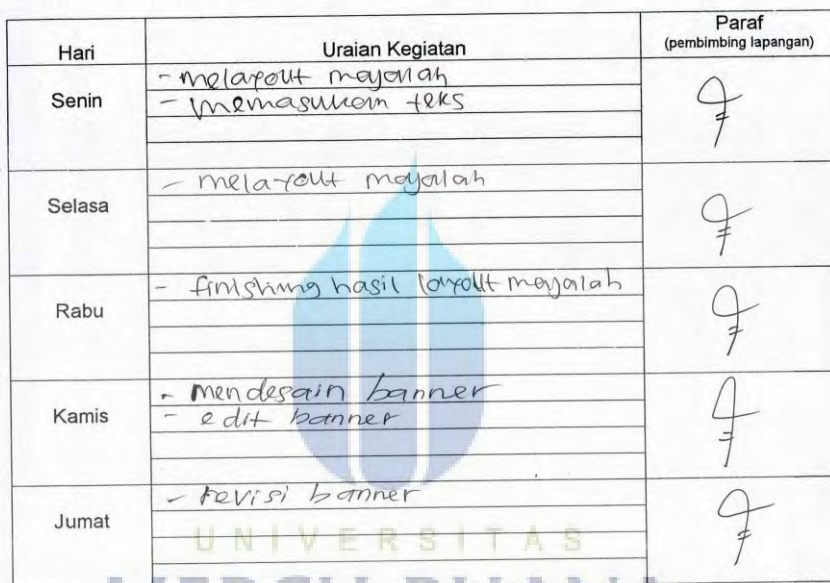 Hari Uraian Kegiatan Paraf
(pembimbing lapangan)
Senin
- melayout majalah
- memasukan teks
Selasa
- melayout majalah
Rabu
- finishing hasil layout majalah
Kamis
- mendesain banner
- edit banner
Jumat
- revisi banner
UNIVERSITAS